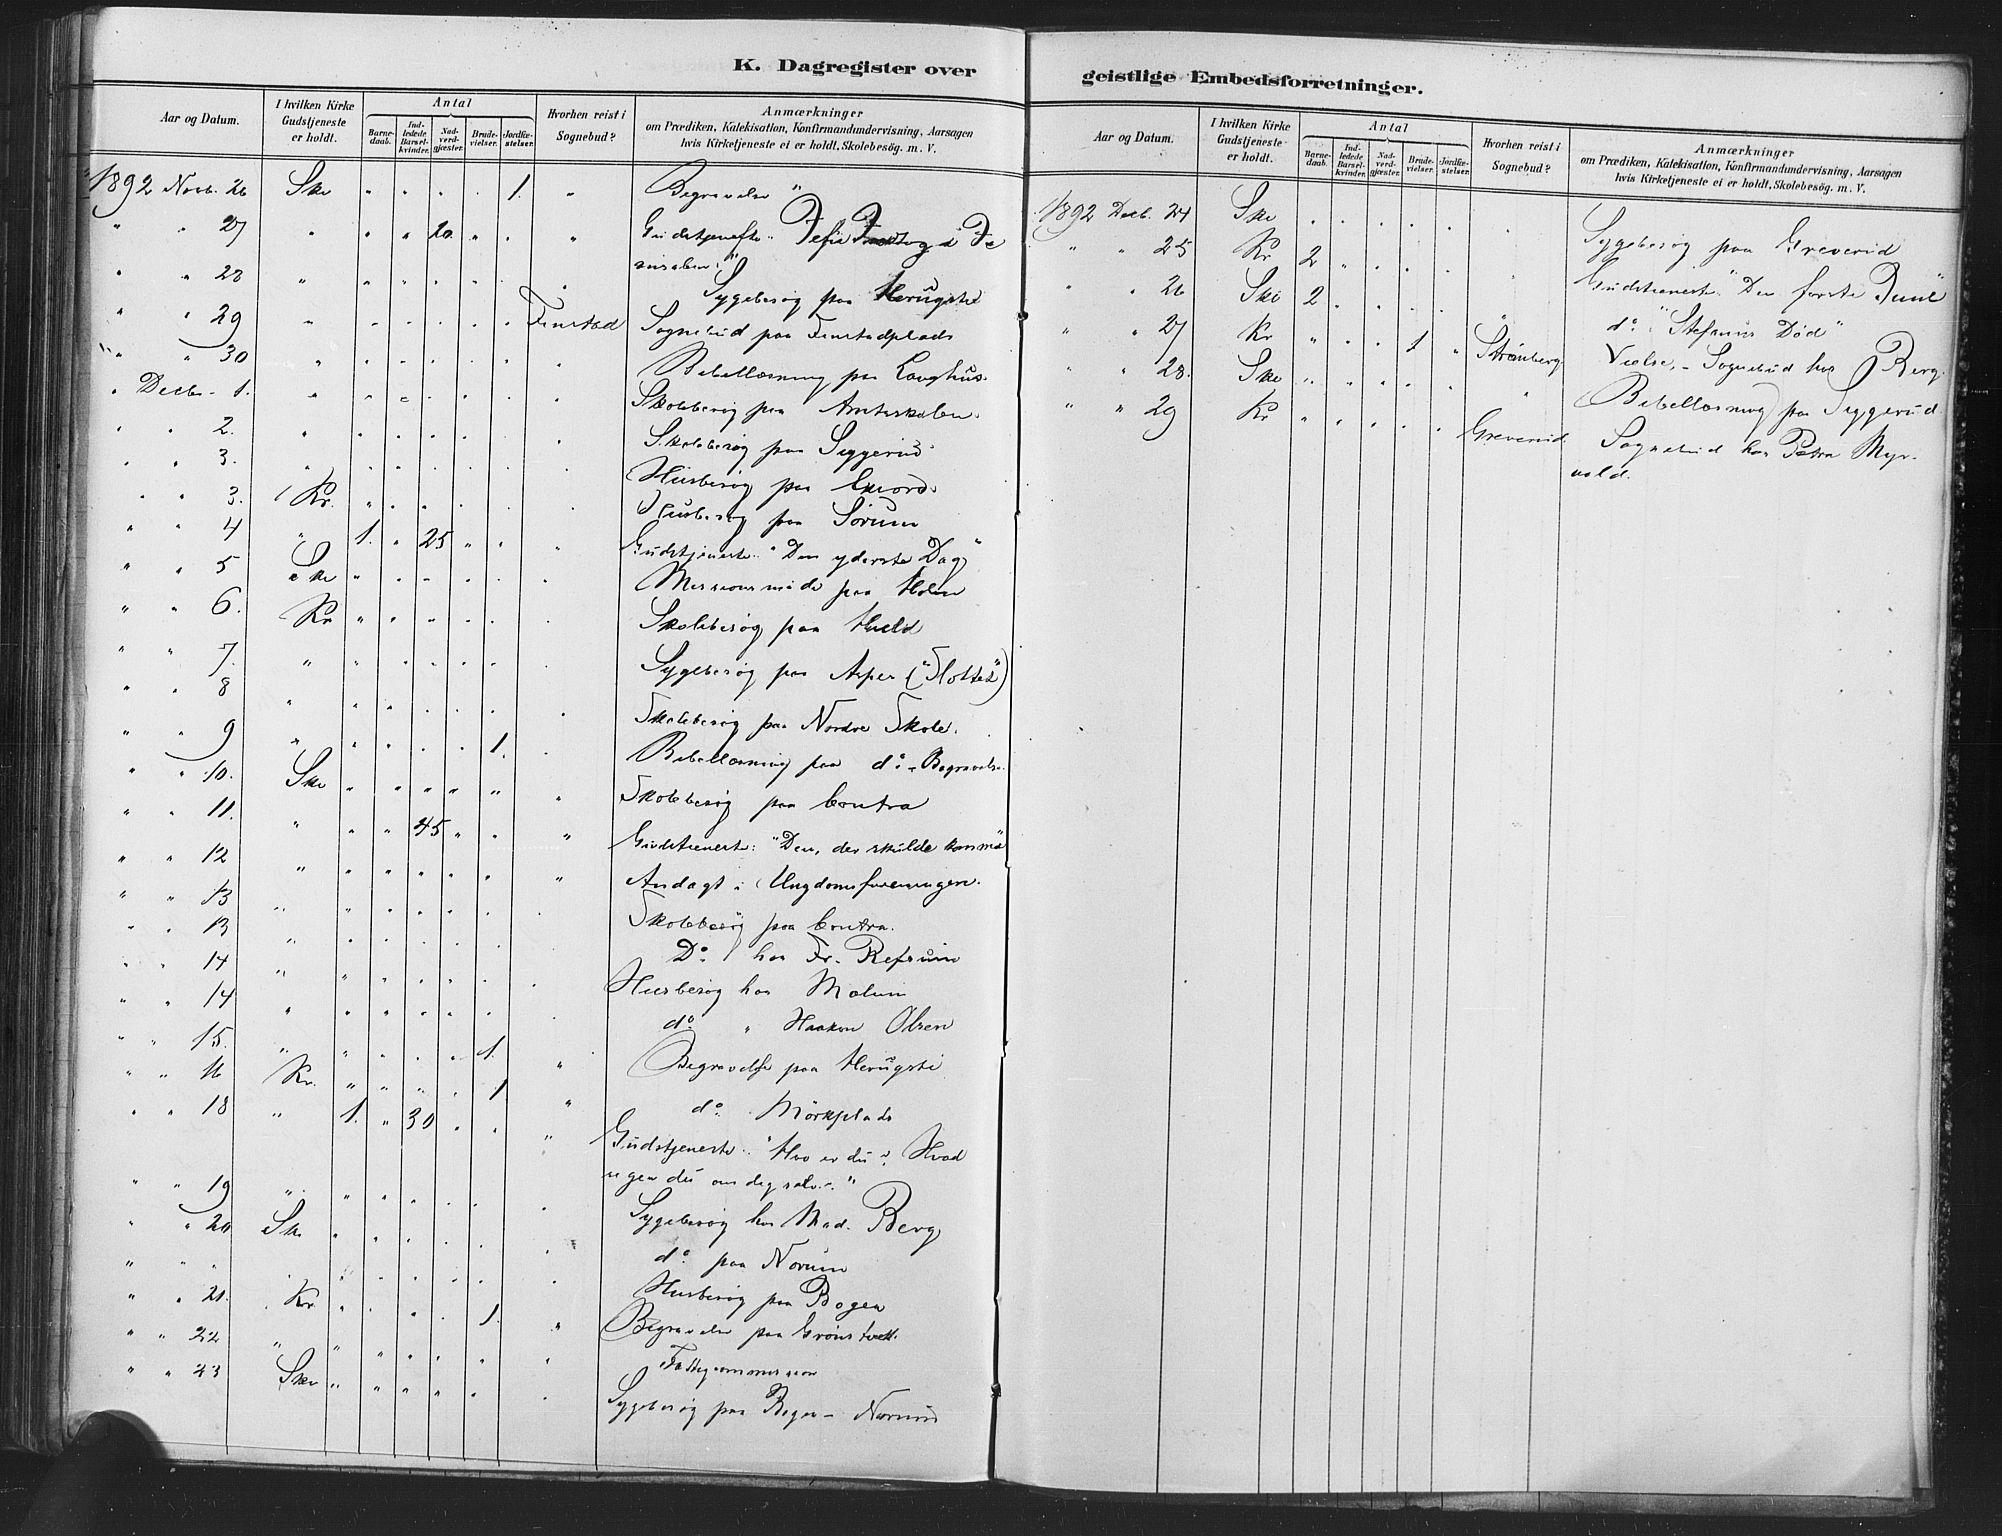 K. Dagregister over
Aar og Datum. I hvilken Kirke Gudstjeneste er holdt. Antal Barnedaab. Indledede Barselkvinder. Nadverdgjæster. Brudevielser. Jordfæstelser. Hvorhen reist i Sognebud? Anmærkninger
om Prædiken, Katekisation, Konfirmandundervisning, Aarsagen
hvis Kirketjeneste ei er holdt, Skolebesög. m. V.
1892 Novb. 26 Ske " " " " 1. " Begravelse
" " 27 " " " 20 " " " Gudstjeneste: "Jesu i
" " 28 " " " " " " " Sygebesøg paa Haugstei
" " 29 " " " " " " Finstad Sognebud paa Finstadplads
" " 30 " " " " " " " Bibellæsning paa Langhus.
" Decbr. 1. " " " " " " " Skolebesøg paa Amtsskolen.
" " 2. " " " " " " " Skolebesøg paa Siggerud.
" " 3. " " " " " " " Husbesøg paa
" " 3. Kr. " " " " " " Husbesøg paa Sørum
" " 4 " 1. " 25 " " " Gudstjeneste: "Den yderste Dag"
" " 5 Ske " " " " " " Missionsmøde paa Holm
" " 6. Kr " " " " " " Skolebesøg paa Hueld
" " 7. " " " " " " " Sygebesøg paa Asper ("Slottet")
" " 8 " " " " " " " Skolebesøg paa Nordre Skole.
" " 9 " " " " " 1. " Bibellæsning paa do. - Begravelse.
" " 10. Ske " " " " " " Skolebesøg paa Contra
" " 11. " " " 45 " " " Gudstjeneste: "Den, der skulde komme"
" " 12 " " " " " " " Andagt i Ungdomsforeningen.
" " 13 " " " " " " " Skolebesøg paa Contra.
" " 13 " " " " " " " Do. hos Fr. Refsum
" " 14 " " " " " " " Husbesøg hos Molum
" " 14 " " " " " " " do. " Haakon Olsen
" " 15. " " " " " 1. " Begravelse paa Haugstei
" " 16 Kr. " " " " 1 " do. Mörkplads
" " 18 " 1. " 30 " " " Gudstjeneste: "Hvo er du? Hvad
siger du om dig selv."
" " 19 " " " " " " " Sygebesøg hos Mad. Berg
" " 20 Ske " " " " " " do. paa Norum
" " " " " " " " " Husbesøg paa Bogen
" " 21. Kr. " " " " 1. " Begravelse paa Grønstvedt.
" " 22 " " " " " " " Fattigcommission
" " 23 Ske " " " " " " Sygebesøg paa - Norum
geistlige Embedsforretninger.
Aar og Datum. I hvilken Kirke Gudstjeneste er holdt. Antal Barnedaab. Indledede Barselkvinder. Nadverdgjæster. Brudevielser. Jordfæstelser. Hvorhen reist i Sognebud? Anmærkninger
om Prædiken, Katekisation, Konfirmandundervisning, Aarsagen
hvis Kirketjeneste ei er holdt, Skolebesög. m. V.
1892 Decb. 24 Ske " " " " " " Sygebesøg paa Greverud
" " 25 Kr 2 " " " " " Gudstjeneste "Den første Juul"
" " 26 Ske 2 " " " " " do. "Stefanus Død"
" " 27 Kr " " " 1 " Strømberg Vielse, - Sognebud hos Berg.
" " 28. Ske " " " " " " Bibellæsning paa Siggerud
" " 29 Kr " " " " " Greverud. Sognebud hos Petra Myr-
vold.